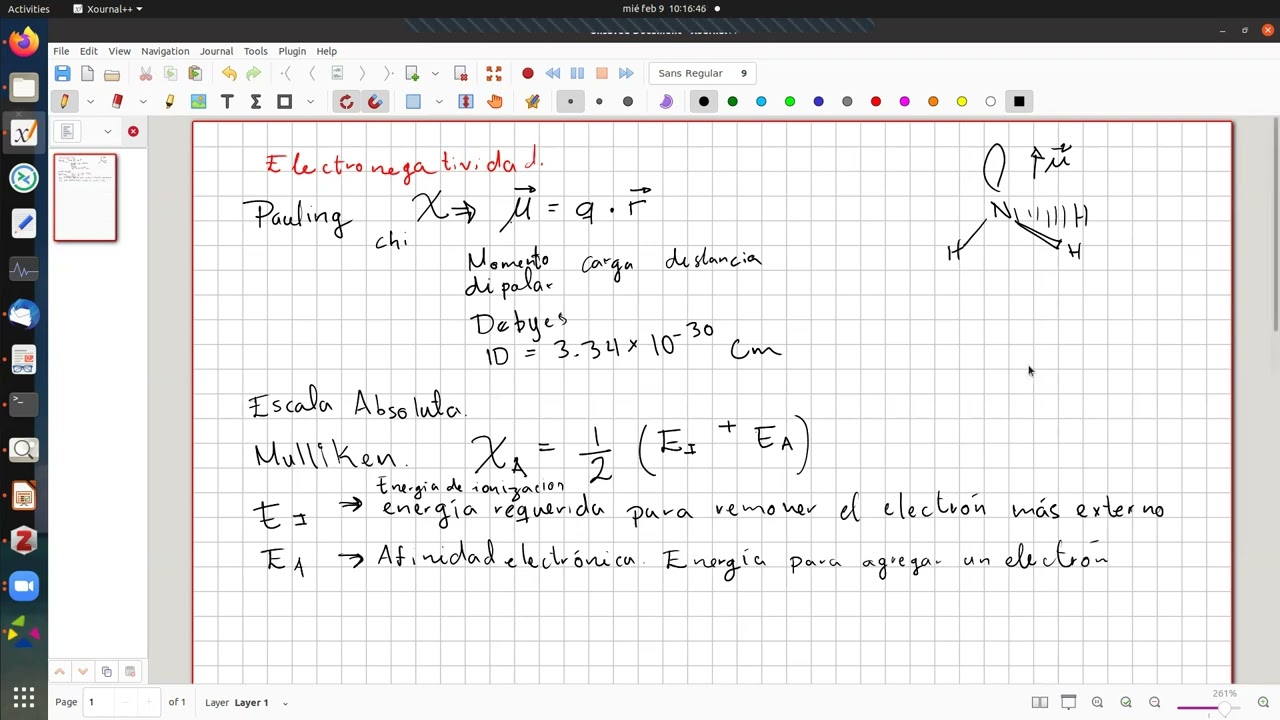 Activities
Xournal++
mié feb 9 10:16:46
File Edit View Navigation Journal Tools Plugin Help
Sans Regular 9
Electronegatividad.
Pauling χ ⇒ μ⃗ = q · r⃗
chi
Momento carga distancia
dipolar
Debyes
1D = 3.34 × 10⁻³⁰ Cm
μ⃗
N H
H H
Escala Absoluta.
Mulliken. χ_A = 1/2 (E_I + E_A)
Energía de ionización
E_I → energía requerida para remover el electrón más externo
E_A → Afinidad electrónica. Energía para agregar un electrón
Page 1 of 1 Layer Layer 1
261%